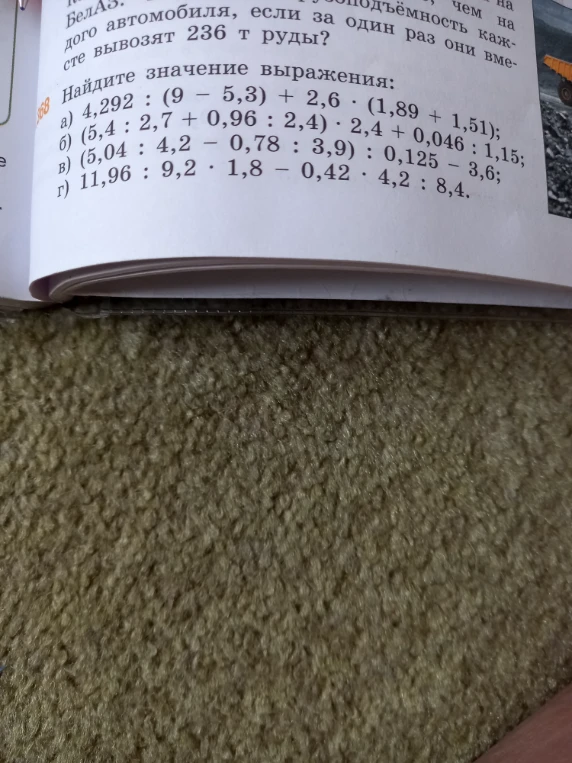 на
БелАЗ. чем на
дого автомобиля, если за один раз они вме-
сте вывозят 236 т руды?
Найдите значение выражения:
а) 4,292 : (9 − 5,3) + 2,6 · (1,89 + 1,51);
б) (5,4 : 2,7 + 0,96 : 2,4) · 2,4 + 0,046 : 1,15;
в) (5,04 : 4,2 − 0,78 : 3,9) : 0,125 − 3,6;
г) 11,96 : 9,2 · 1,8 − 0,42 · 4,2 : 8,4.